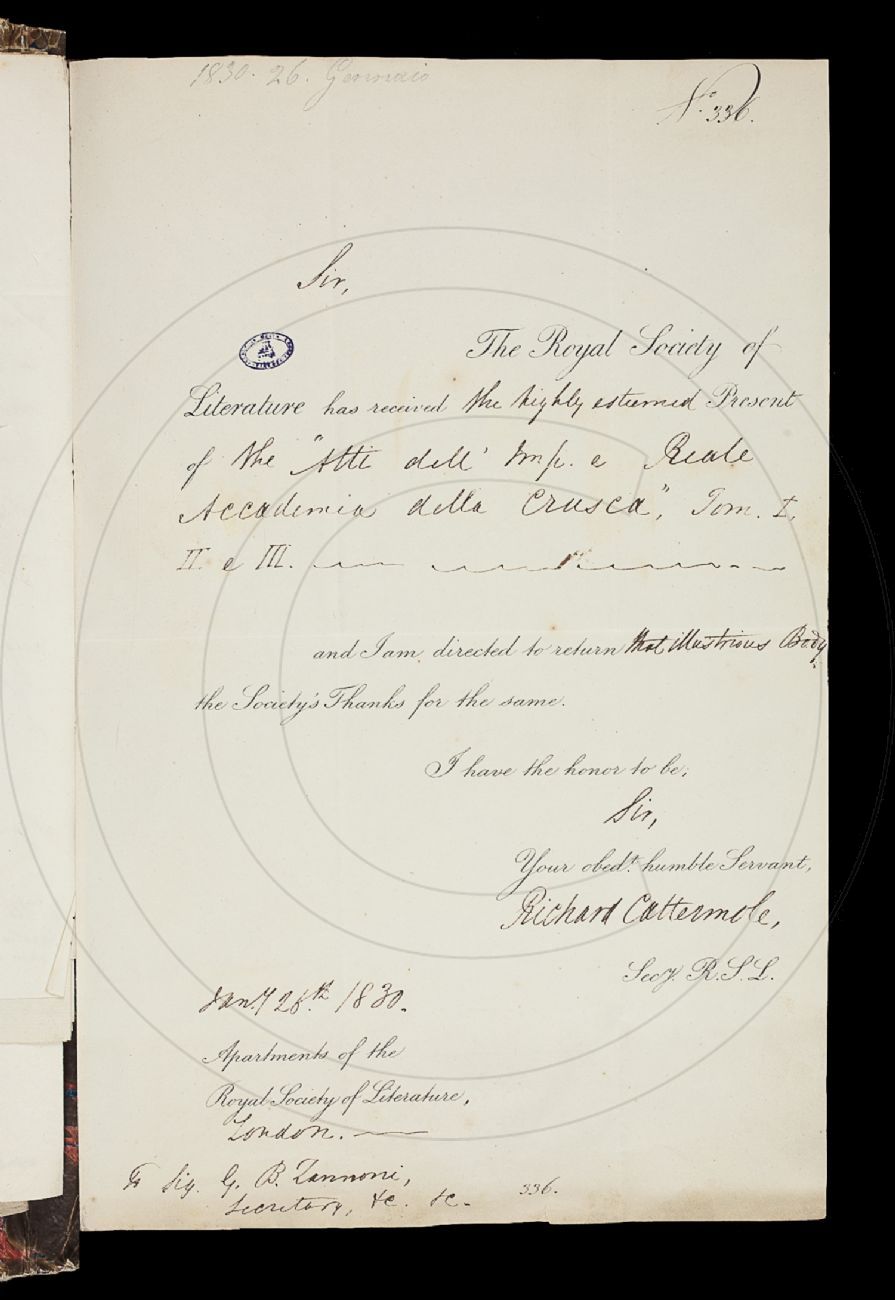 1830. 26. Gennaio
N.o 336.
Sir,
The Royal Society of
Literature has received the highly esteemed Present
of the "Atti dell' Imp. e Reale
Accademia della Crusca", Tom. I,
II e III.
and I am directed to return that illustrious Body
the Society's Thanks for the same.
I have the honor to be,
Sir,
Your obed.t humble Servant,
Richard Cattermole,
Secy. R.S.L.
Jany 26.th 1830.
Apartments of the
Royal Society of Literature,
London.
To Sig. G. B. Zannoni,
Secretary, &c. &c.
336.